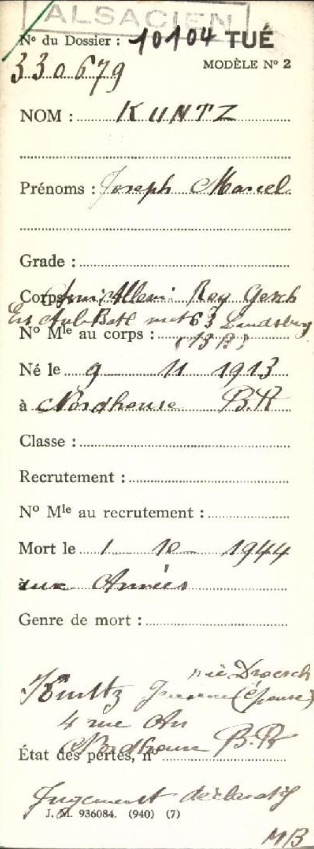 ALSACIEN
Nº du Dossier : 10104 TUÉ
330679 MODÈLE Nº 2
NOM : KUNTZ
Prénoms : Joseph Marcel
Grade :
Corps
Ers Aub Batl mot 63 Landsberg
Nº Mle au corps : (13 B)
Né le 9 11 1913
à Nordhouse B.R
Classe :
Recrutement :
Nº Mle au recrutement :
Mort le 1 10 1944
aux Armées
Genre de mort :
née
Kuntz (épouse)
4 rue
Nordhouse B.R
État des pertes, nº
Jugement déclaratif
J. M. 936084. (940) (7)
MB